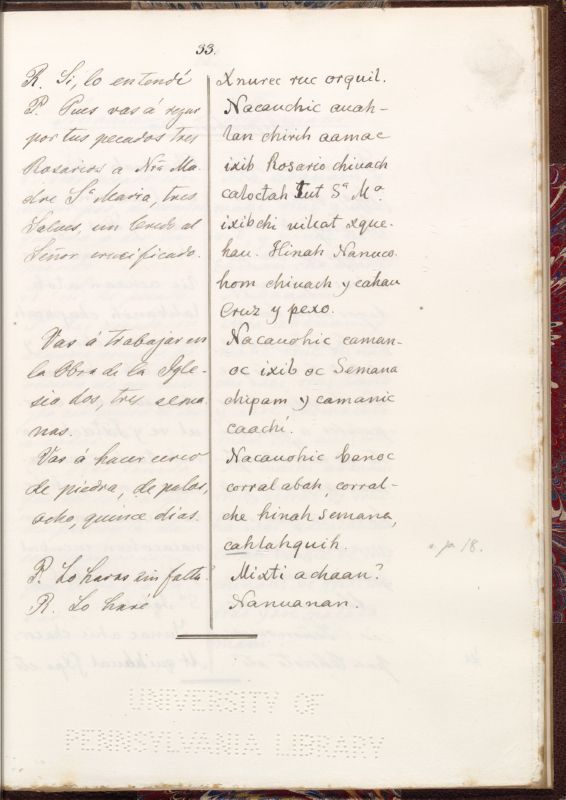 33.
R. Si, lo entendé
P. Pues vas á rezar
por tus pecados tres
Rosarios a Nra Ma-
dre Sª Maria, tres
Salves, un Credo al
Señor crucificado.
Vas á trabajar en
la Obra de la Igle-
sia dos, tres sema
nas.
Vas á hacer cerco
de piedra, de palos,
ocho, quince dias.
P. Lo haras sin falta?
R. Lo haré
Xnurec ruc orquil.
Nacauchic auah-
lan chirih aamac
ixib Rosario chiuach
caloctah tut Sª Mª.
ixibchi vihat xque-
hau. Hinah Nanuco.
hom chiuach y cahau
Cruz y pexo.
Nacauohic caman-
oc ixib oc Semana
chipam y camanic
caachí.
Nacauohic banoc
corral abah, corral-
che hinah semana,
cahlahquih.
Mixti achaan?
Nanuanan.
18.
UNIVERSITY OF
PENNSYLVANIA LIBRARY